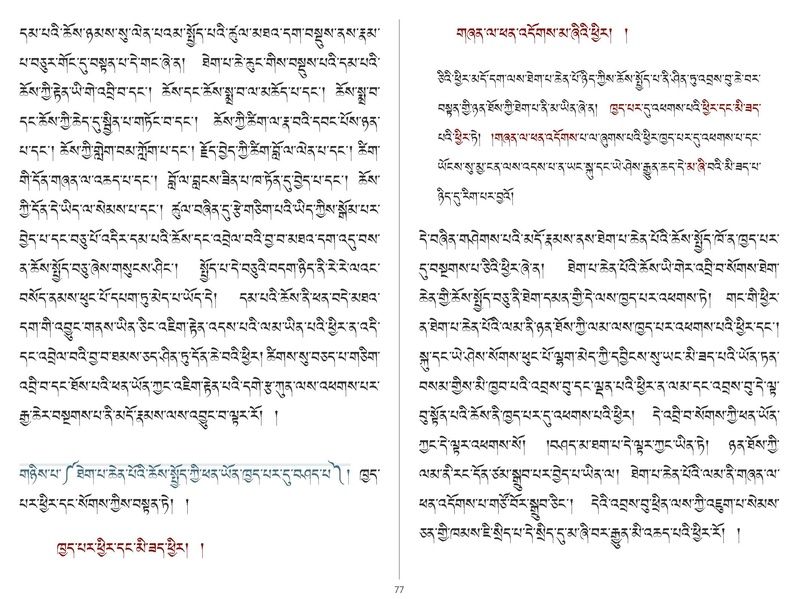 དམ་པའི་ཆོས་ཉམས་སུ་ལེན་པའམ་སྤྱོད་པའི་ཚུལ་མཐའ་དག་བསྡུས་ནས་རྣམ་
པ་བཅུར་གོང་དུ་བསྟན་པ་དེ་གང་ཞེ་ན། ཐེག་པ་ཆེ་ཆུང་གིས་བསྡུས་པའི་དམ་པའི་
ཆོས་ཀྱི་རྟེན་ཡི་གེ་འབྲི་བ་དང་། ཆོས་དང་ཆོས་སྨྲ་བ་ལ་མཆོད་པ་དང་། ཆོས་སྨྲ་བ་
དང་ཆོས་ཀྱི་ཆེད་དུ་སྦྱིན་པ་གཏོང་བ་དང་། ཆོས་ཀྱི་ཚིག་ལ་རྣ་བའི་དབང་པོས་ཉན་
པ་དང་། ཆོས་ཀྱི་གླེག་བམ་ཀློག་པ་དང་། རྗོད་བྱེད་ཀྱི་ཚིག་བློ་ལ་ལེན་པ་དང་། ཚིག་
གི་དོན་གཞན་ལ་འཆད་པ་དང་། བློ་ལ་བླངས་ཟིན་པ་ཁ་ཏོན་དུ་བྱེད་པ་དང་། ཆོས་
ཀྱི་དོན་དེ་ཡིད་ལ་སེམས་པ་དང་། ཚུལ་བཞིན་དུ་རྩེ་གཅིག་པའི་ཡིད་ཀྱིས་སྒོམ་པར་
བྱེད་པ་དང་བཅུ་པོ་འདིར་དམ་པའི་ཆོས་དང་འབྲེལ་བའི་བྱ་བ་མཐའ་དག་འདུ་བས་
ན་ཆོས་སྤྱོད་བཅུ་ཞེས་གསུངས་ཤིང་། སྤྱོད་པ་དེ་བཅུའི་བདག་ཉིད་ནི་རེ་རེ་ལའང་
བསོད་ནམས་ཕུང་པོ་དཔག་ཏུ་མེད་པ་ཡོད་དེ། དམ་པའི་ཆོས་ནི་ཕན་བདེ་མཐའ་
དག་གི་འབྱུང་གནས་ཡིན་ཅིང་འཇིག་རྟེན་འདས་པའི་ལམ་ཡིན་པའི་ཕྱིར་ན་འདི་
དང་འབྲེལ་བའི་བྱ་བ་ཐམས་ཅད་ཤིན་ཏུ་དོན་ཆེ་བའི་ཕྱིར། ཚིགས་སུ་བཅད་པ་གཅིག་
འབྲི་བ་དང་ཐོས་པའི་ཕན་ཡོན་ཀྱང་འཇིག་རྟེན་པའི་དགེ་རྩ་ཀུན་ལས་འཕགས་པར་
རྒྱ་ཆེར་བསྔགས་པ་ནི་མདོ་རྣམས་ལས་འབྱུང་བ་ལྟར་རོ། །
གཉིས་པ་༼ཐེག་པ་ཆེན་པོའི་ཆོས་སྤྱོད་ཀྱི་ཕན་ཡོན་ཁྱད་པར་དུ་བཤད་པ་༽། ཁྱད་
པར་ཕྱིར་དང་སོགས་ཀྱིས་བསྟན་ཏེ། །
ཁྱད་པར་ཕྱིར་དང་མི་ཟད་ཕྱིར། །
གཞན་ལ་ཕན་འདོགས་མ་ཞིའི་ཕྱིར། །
ཅིའི་ཕྱིར་མདོ་དག་ལས་ཐེག་པ་ཆེན་པོ་ཉིད་ཀྱིས་ཆོས་སྤྱོད་པ་ནི་ཤིན་ཏུ་འབྲས་བུ་ཆེ་བར་
བསྟན་གྱི་ཉན་ཐོས་ཀྱི་ཐེག་པ་ནི་མ་ཡིན་ཞེ་ན། ཁྱད་པར་དུ་འཕགས་པའི་ཕྱིར་དང་མི་ཟད་
པའི་ཕྱིར་ཏེ། །གཞན་ལ་ཕན་འདོགས་པ་ལ་ཞུགས་པའི་ཕྱིར་ཁྱད་པར་དུ་འཕགས་པ་དང་
ཡོངས་སུ་མྱ་ངན་ལས་འདས་པ་ན་ཡང་སྐུ་དང་ཡེ་ཤེས་རྒྱུན་ཆད་དེ་མ་ཞི་བའི་མི་ཟད་པ་
ཉིད་དུ་རིག་པར་བྱའོ།
དེ་བཞིན་གཤེགས་པའི་མདོ་རྣམས་ནས་ཐེག་པ་ཆེན་པོའི་ཆོས་སྤྱོད་ཁོ་ན་ཁྱད་པར་
དུ་བསྔགས་པ་ཅིའི་ཕྱིར་ཞེ་ན། ཐེག་པ་ཆེན་པོའི་ཆོས་ཡི་གེར་འབྲི་བ་སོགས་ཐེག་
ཆེན་གྱི་ཆོས་སྤྱོད་བཅུ་ནི་ཐེག་དམན་གྱི་དེ་ལས་ཁྱད་པར་འཕགས་ཏེ། གང་གི་ཕྱིར་
ན་ཐེག་པ་ཆེན་པོའི་ལམ་ནི་ཉན་ཐོས་ཀྱི་ལམ་ལས་ཁྱད་པར་འཕགས་པའི་ཕྱིར་དང་།
སྐུ་དང་ཡེ་ཤེས་སོགས་ཕུང་པོ་ལྷག་མེད་ཀྱི་དབྱིངས་སུ་ཡང་མི་ཟད་པའི་ཡོན་ཏན་
བསམ་གྱིས་མི་ཁྱབ་པའི་འབྲས་བུ་དང་ལྡན་པའི་ཕྱིར་ན་ལམ་དང་འབྲས་བུ་དེ་ལྟ་
བུ་སྟོན་པའི་ཆོས་ནི་ཁྱད་པར་དུ་འཕགས་པའི་ཕྱིར། དེ་འབྲི་བ་སོགས་ཀྱི་ཕན་ཡོན་
ཀྱང་དེ་ལྟར་འཕགས་སོ། །བཤད་མ་ཐག་པ་དེ་ལྟར་ཀྱང་ཡིན་ཏེ། ཉན་ཐོས་ཀྱི་
ལམ་ནི་རང་དོན་ཙམ་སྒྲུབ་པར་བྱེད་པ་ཡིན་ལ། ཐེག་པ་ཆེན་པོའི་ལམ་ནི་གཞན་ལ་
ཕན་འདོགས་པ་གཙོ་བོར་སྒྲུབ་ཅིང་། དེའི་འབྲས་བུ་ཕྲིན་ལས་ཀྱི་འཇུག་པ་སེམས་
ཅན་གྱི་ཁམས་ཇི་སྲིད་པ་དེ་སྲིད་དུ་མ་ཞི་བར་རྒྱུན་མི་འཆད་པའི་ཕྱིར་རོ། །
77